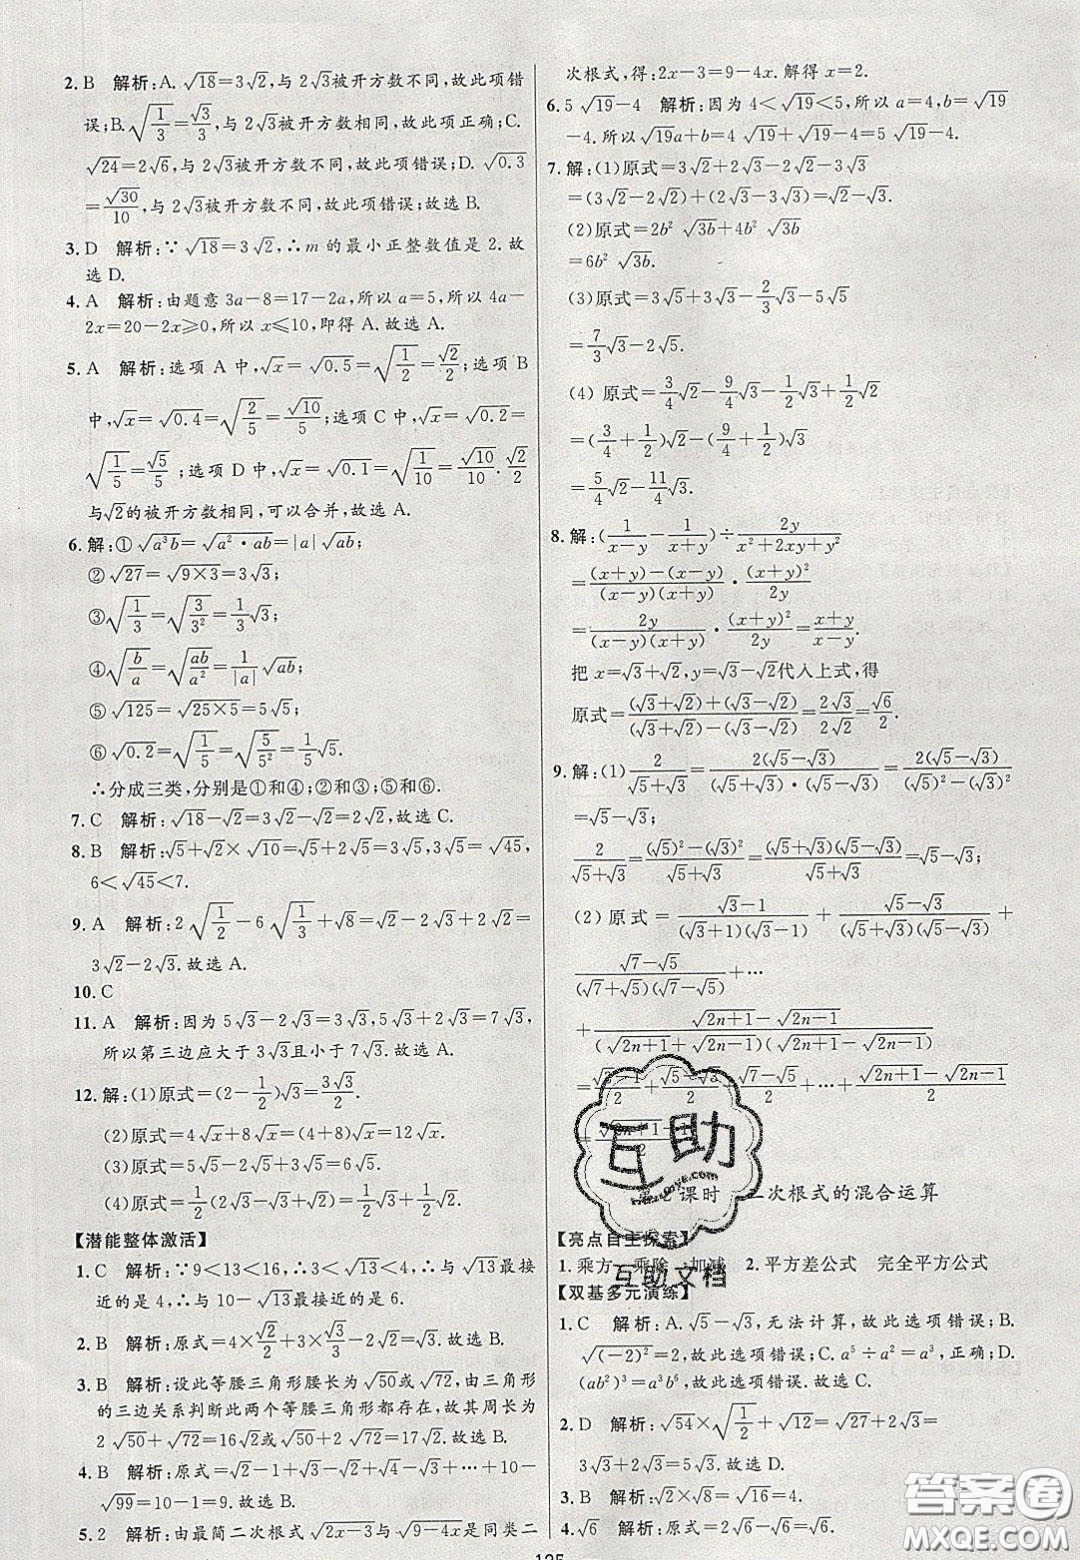 2. B 解析:A. √18=3√2,与 2√3被开方数不同,故此项错
误;B.√(1/3)=√3/3,与 2√3被开方数相同,故此项正确;C.
√24=2√6,与 2√3被开方数不同,故此项错误;D. √0.3
=√30/10,与 2√3被开方数不同,故此项错误;故选 B.
3. D 解析:∵√18=3√2,∴m 的最小正整数值是 2.故
选 D.
4. A 解析:由题意 3a-8=17-2a,所以 a=5,所以 4a-
2x=20-2x≥0,所以 x≤10,即得 A.故选 A.
5. A 解析:选项 A 中,√x=√0.5=√(1/2)=√2/2;选项 B
中,√x=√0.4=√(2/5)=√10/5;选项 C 中,√x=√0.2=
√(1/5)=√5/5;选项 D 中,√x=√0.1=√(1/10)=√10/10.√2/2
与√2的被开方数相同,可以合并,故选 A.
6. 解:①√(a³b)=√(a²·ab)=|a|√ab;
②√27=√(9×3)=3√3;
③√(1/3)=√(3/3²)=(1/3)√3;
④√(b/a)=√(ab/a²)=(1/|a|)√ab;
⑤√125=√(25×5)=5√5;
⑥√0.2=√(1/5)=√(5/5²)=(1/5)√5.
∴分成三类,分别是①和④;②和③;⑤和⑥.
7. C 解析:√18-√2=3√2-√2=2√2.故选 C.
8. B 解析:√5+√2×√10=√5+2√5=3√5,3√5=√45,
6<√45<7.
9. A 解析:2√(1/2)-6√(1/3)+√8=√2-2√3+2√2=
3√2-2√3.故选 A.
10. C
11. A 解析:因为 5√3-2√3=3√3,5√3+2√3=7√3,
所以第三边应大于 3√3且小于 7√3.故选 A.
12. 解:(1)原式=(2-1/2)√3=3√3/2.
(2)原式=4√x+8√x=(4+8)√x=12√x.
(3)原式=5√5-2√5+3√5=6√5.
(4)原式=2√2+(1/2)√2-(1/2)√2=2√2.
【潜能整体激活】
1. C 解析:∵9<13<16,∴3<√13<4,∴与√13最接
近的是 4,∴与 10-√13最接近的是 6.
2. B 解析:原式=4×√2/2+3×√3/3-2√2=√3.故选 B.
3. B 解析:设此等腰三角形腰长为√50或√72,由三角形
的三边关系判断此两个等腰三角形都存在,故其周长为
2√50+√72=16√2或√50+2√72=17√2.故选 B.
4. B 解析:原式=√2-1+√3-√2+√4-√3+…+10-
√99=10-1=9.故选 B.
5. 2 解析:由最简二次根式√(2x-3)与√(9-4x)是同类二
次根式,得:2x-3=9-4x.解得 x=2.
6. 5√19-4 解析:因为 4<√19<5,所以 a=4,b=√19
-4.所以√19a+b=4√19+√19-4=5√19-4.
7. 解:(1)原式=3√2+2√3-2√2-3√3
=(3√2-2√2)+(2√3-3√3)=√2-√3.
(2)原式=2b²√3b·4b²√3b
=6b²√3b.
(3)原式=3√5+3√3-(2/3)√3-5√5
=(7/3)√3-2√5.
(4)原式=(3/4)√2-(9/4)√3-(1/2)√3+(1/2)√2
=(3/4+1/2)√2-(9/4+1/2)√3
=(5/4)√2-(11/4)√3.
8. 解:(1/(x-y)-1/(x+y))÷2y/(x²+2xy+y²)
=((x+y)-(x-y))/((x-y)(x+y))·(x+y)²/2y
=2y/((x-y)(x+y))·(x+y)²/2y=(x+y)/(x-y).
把 x=√3+√2,y=√3-√2代入上式,得
原式=((√3+√2)+(√3-√2))/((√3+√2)-(√3-√2))=2√3/2√2=√6/2.
9. 解:(1)2/(√5+√3)=2(√5-√3)/((√5+√3)·(√5-√3))=2(√5-√3)/((√5)²-(√3)²)=
√5-√3;
2/(√5+√3)=((√5)²-(√3)²)/(√5+√3)=(√5+√3)(√5-√3)/(√5+√3)=√5-√3;
(2)原式=(√3-1)/((√3+1)(√3-1))+(√5-√3)/((√5+√3)(√5-√3))+
(√7-√5)/((√7+√5)(√7-√5))+…
+(√(2n+1)-√(2n-1))/((√(2n+1)+√(2n-1))(√(2n+1)-√(2n-1)))
=(√3-1)/2+(√5-√3)/2+(√7-√5)/2+…+(√(2n+1)-√(2n-1))/2
=(√(2n+1)-1)/2.
课时 二次根式的混合运算
【亮点自主探索】
1. 乘方 乘除 加减 2. 平方差公式 完全平方公式
【双基多元演练】
1. C 解析:A.√5-√3,无法计算,故此选项错误;B.
√(-2)²=2,故此选项错误;C. a⁵÷a²=a³,正确;D.
(ab²)³=a³b⁶,故此选项错误.故选 C.
2. D 解析:√54×√(1/2)+√12=√27+2√3=
3√3+2√3=5√3.
3. B 解析:√2×√8=√16=4.
4. √6 解析:原式=2√6-√6=√6.
125
互助
互助文档
答案圈
MXQE.COM